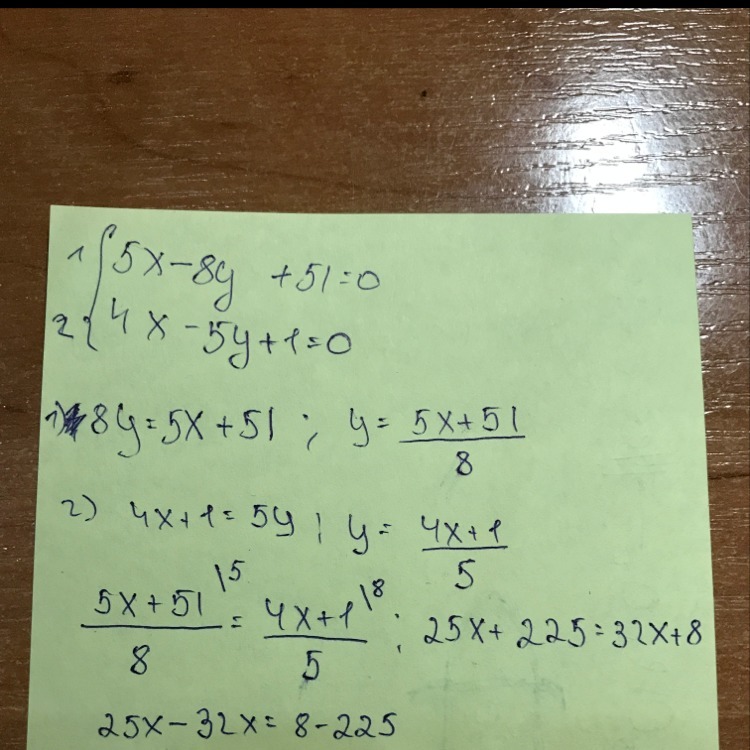 1 { 5x-8y +51=0
2 { 4x-5y+1=0
1) 8y=5x+51 ; y= (5x+51)/8
2) 4x+1=5y ; y= (4x+1)/5
(5x+51)/8 \5 = (4x+1)/5 \8 ; 25x+225=32x+8
25x-32x=8-225